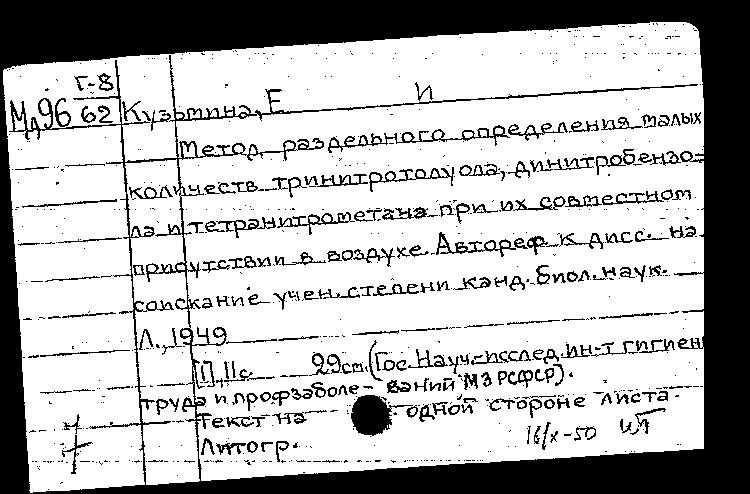 Г-8
Мд96 62 Кузьмина, Е И
Метод раздельного определения малых
количеств тринитротолуола, динитробензо-
ла и тетранитрометана при их совместном
присутствии в воздухе. Автореф к дисс. на
соискание учен. степени канд. биол. наук.
Л., 1949
[1], 11 с. 29 см. (Гос. Науч.-исслед. ин-т гигиены
труда и профзаболе- ваний МЗ РСФСР).
Текст на одной стороне листа.
Литогр.
16/X-50